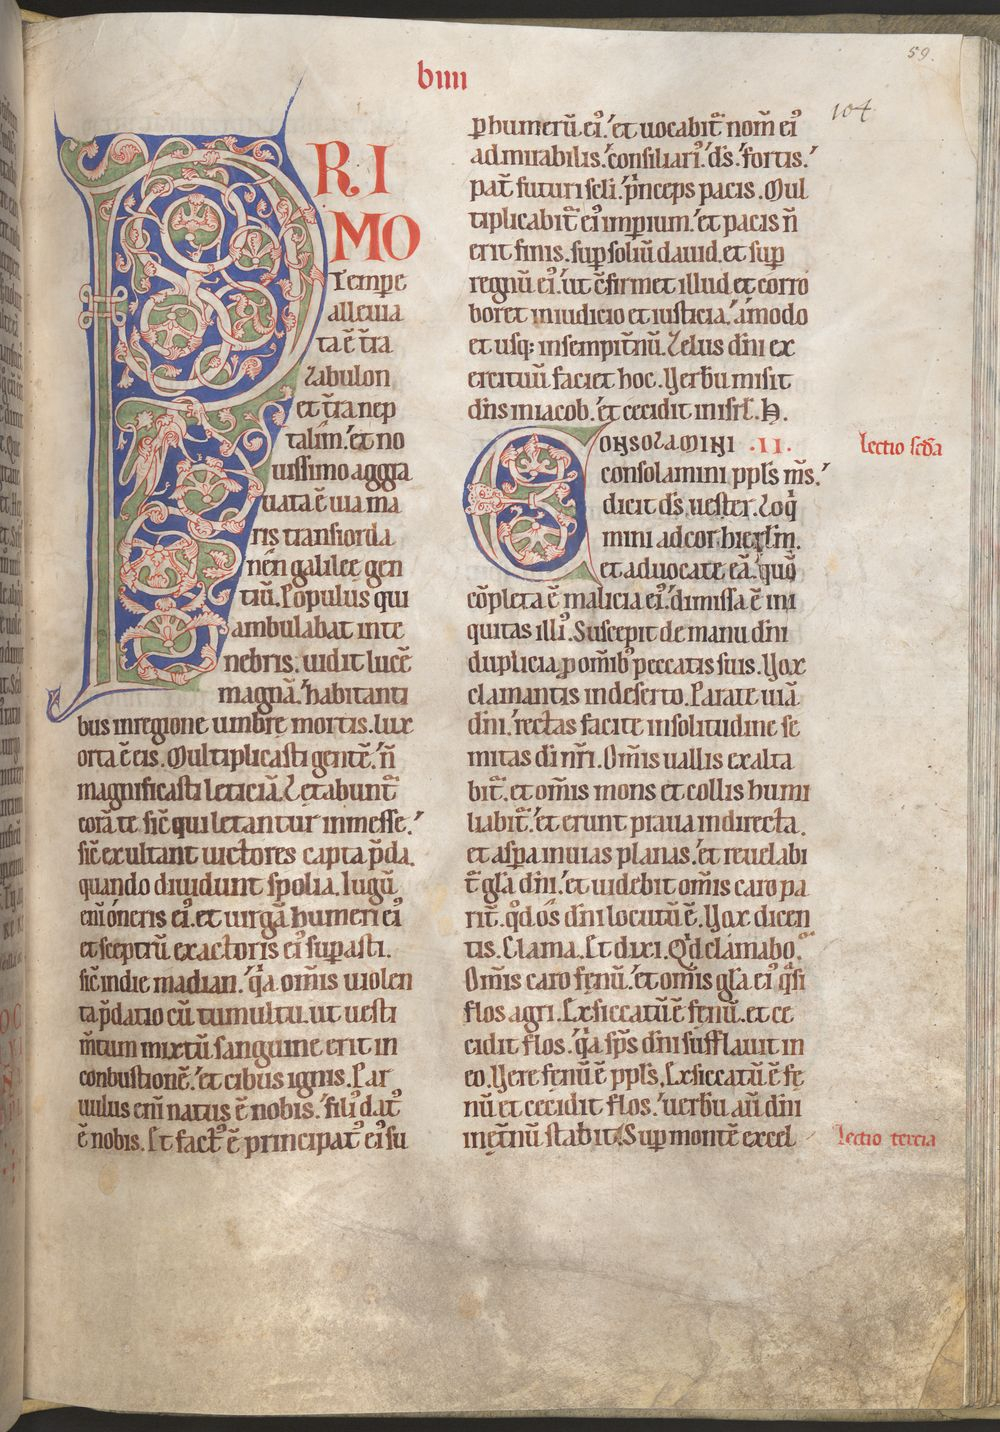 59.
104.
bıııı
PRI
MO
Tempe
alleuia
ta ē t̄ra
Zabulon
et t̄ra nep
talim.' et no
uissimo aggra
uata ē uia ma
ris transiorda
nen galilee gen
tiū. Populus qui
ambulabat inte
nebris. uidit lucē
magnā.' habitanti
bus inregione umbrę mortis. lux
orta ē eis. Multiplicasti gentē.' n̄
magnificasti leticiā. Letabunt᷑
corā te sic̄ qui letantur inmesse.'
sic̄ exultant uictores capta p̄da.
quando diuidunt spolia. Iugū
eni᷑ oneris ei᷒. et uirgā humeri ei᷒
et sceptrū exactoris ei᷒ supasti.
sic̄ indie madian.' q̓a om̄is uiolen
ta p̄datio cū tumultu. ut uesti
m̄tum mixtū sanguine erit in
conbustionē.' et cibus ignis. Par
uulus eni᷑ natus ē nobis.' fili᷒ dat᷒
ē nobis. Et fact᷒ ē principat᷒ ei᷒ su
p humerū ei᷒.' et uocabit᷑ nom̄ ei᷒
admirabilis.' consiliari᷒.' d̄s.' fortis.'
pat̄ futuri sc̄li.' p̓nceps pacis. Mul
tiplicabit᷑ ei᷒ impium.' et pacis n̄
erit finis. sup soliū dauid. et sup
regnū ei᷒.' ut c̄firmet illud et corro
boret iniudicio et iusticia.' amodo
et usq; insempit̄nū. Zelus dn̄i ex
ercituū faciet hoc. Verbū misit
dn̄s iniacob.' et cecidit inisrl̄. H.
CONSOLAMINI .II.
lectio sc̄da
consolamini ppl̄s m̄s.'
dicit d̄s uester. Loq̓
mini ad cor hierl̄m.
et aduocate eā. quō
cōpleta ē malicia ei᷒.' dimissa ē ini
quitas illi᷒. Suscepit de manu dn̄i
duplicia p om̄ib᷒ peccatis suis. Vox
clamantis indeserto. Parate uiā
dn̄i.' rectas facite insolitudine se
mitas di nr̄i. Om̄is uallis exalta
bit᷑. et om̄is mons et collis humi
liabit᷑.' et erunt praua indirecta.
et aspa inuias planas.' et reuelabi
t᷑ gl̄a dn̄i.' et uidebit om̄is caro pa
rit᷑. qd̓ os dn̄i locutū ē. Vox dicen
tis. Clama. Et dixi. Qd̓ clamabo.
Om̄is caro fęnū.' et om̄is gl̄a ei᷒ q̓si
flos agri. Exsiccatū ē fęnū. et ce
cidit flos.' q̓a sp̄s dn̄i sufflauit in
eo. Vere fęnū ē ppl̄s. Exsiccatū ē fę
nū et cecidit flos.' uerbū aū dn̄i
inęt̄nū stabit. Sup montē excel
lectio tercia